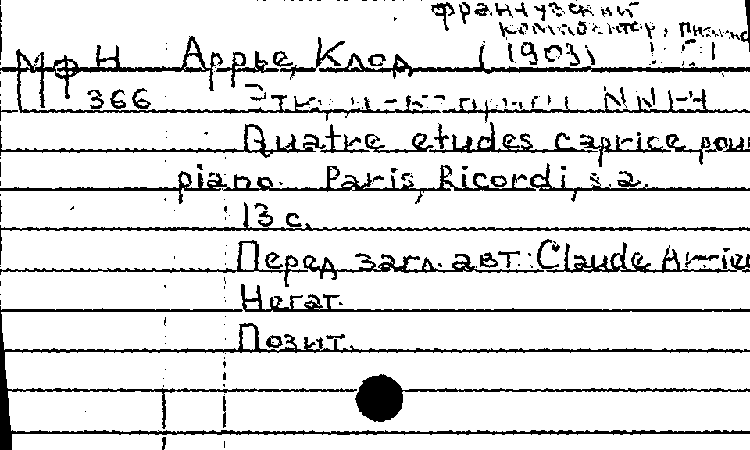 французский
композитор, пианис
МФ Н Аррье, Клод (1903)
366 Этюды-каприсы NN 1-4
Quatre etudes caprice pour
piano. Paris, Ricordi, s.a.
13 с.
Перед загл. авт: Claude Arrieu
Негат.
Позит.